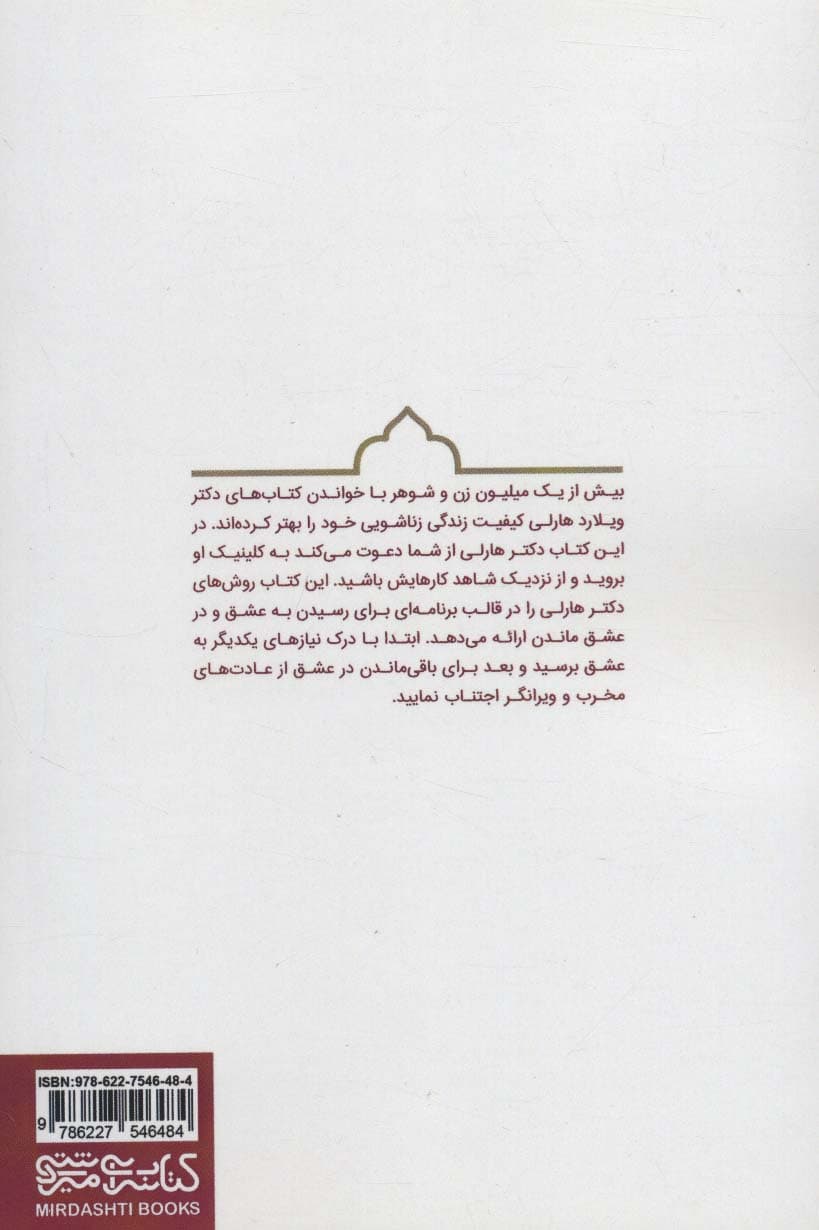 بیش از یک میلیون زن و شوهر با خواندن کتاب‌های دکتر
ویلارد هارلی کیفیت زندگی زناشویی خود را بهتر کرده‌اند. در
این کتاب دکتر هارلی از شما دعوت می‌کند به کلینیک او
بروید و از نزدیک شاهد کارهایش باشید. این کتاب روش‌های
دکتر هارلی را در قالب برنامه‌ای برای رسیدن به عشق و در
عشق ماندن ارائه می‌دهد. ابتدا با درک نیازهای یکدیگر به
عشق برسید و بعد برای باقی‌ماندن در عشق از عادت‌های
مخرب و ویرانگر اجتناب نمایید.
ISBN:978-622-7546-48-4
9 786227 546484
کتابسرای میردشتی
MIRDASHTI BOOKS